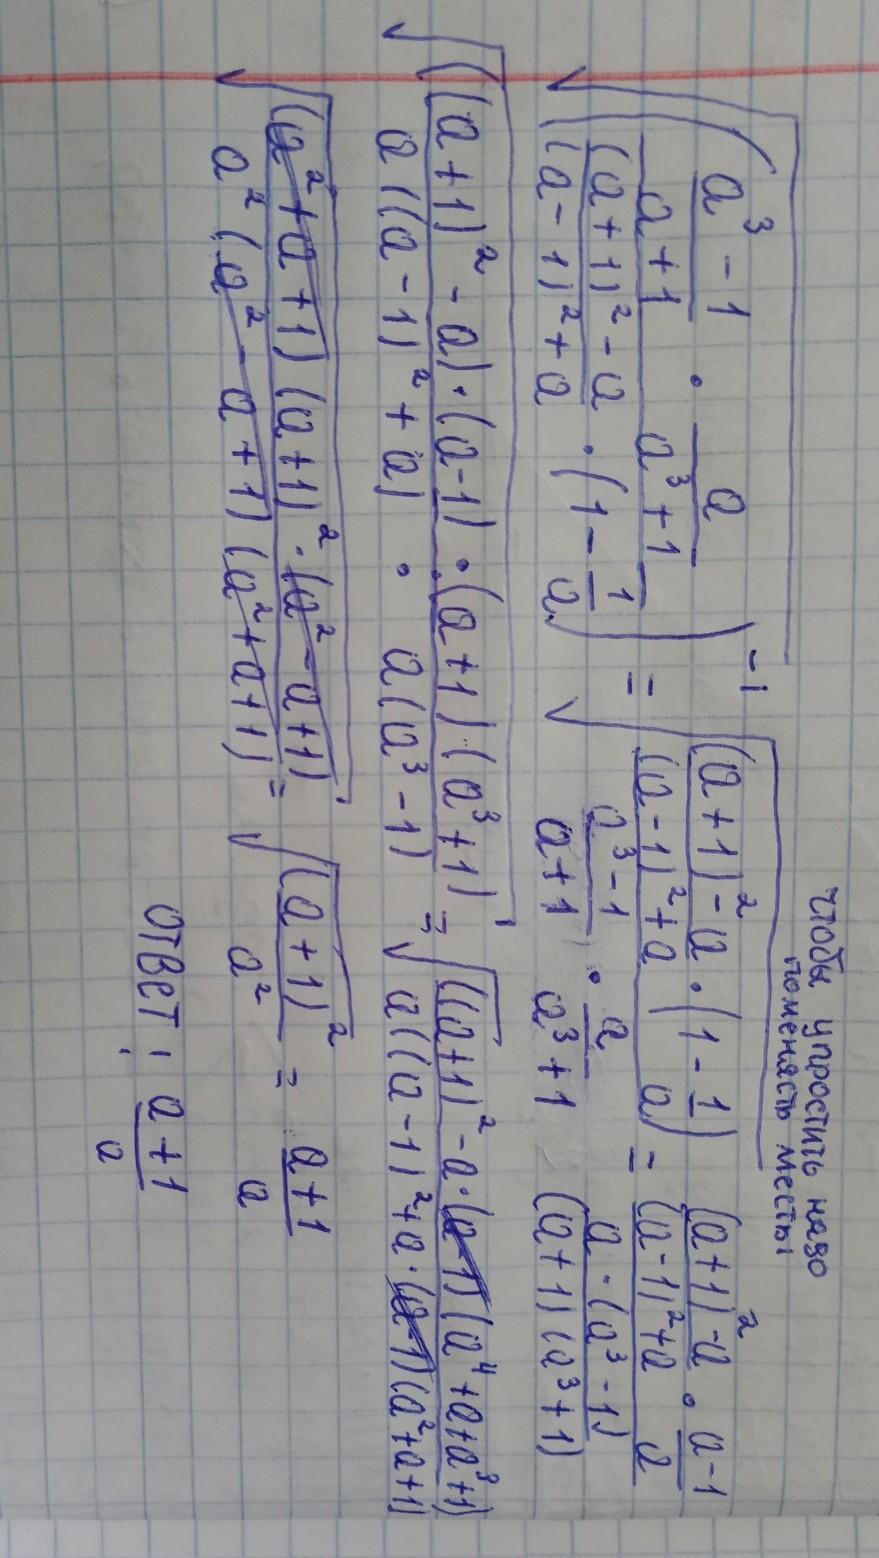 чтобы упростить надо
поменять месты
√(((a³-1)/(a+1) · a/(a³+1)) / (((a+1)²-a)/((a-1)²+a) · (1-1/a)))⁻¹ = √(((a+1)²-a)/((a-1)²+a) · (1-1/a)) / ((a³-1)/(a+1) · a/(a³+1)) = ((a+1)²-a)/((a-1)²+a) · (a-1)/a / (a·(a³-1))/((a+1)(a³+1))
√(((a+1)²-a)·(a-1)·(a+1)(a³+1)) / (a((a-1)²+a) · a(a³-1)) = √((a+1)²-a·(a-1)(a⁴+a+a³+1)) / (a((a-1)²+a·(a-1)(a²+a+1))
√((a²+a+1)(a+1)²·(a²-a+1)) / (a²(a²-a+1)(a²+a+1)) = √((a+1)²/a²) = (a+1)/a
ответ: (a+1)/a